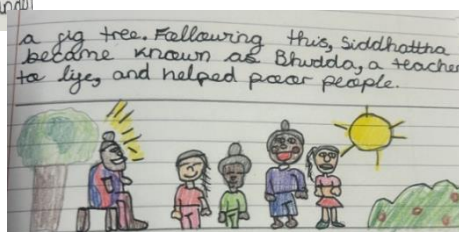 a fig tree. Following this, Siddhattha
became known as Bhudda, a teacher
to lye, and helped poor people.